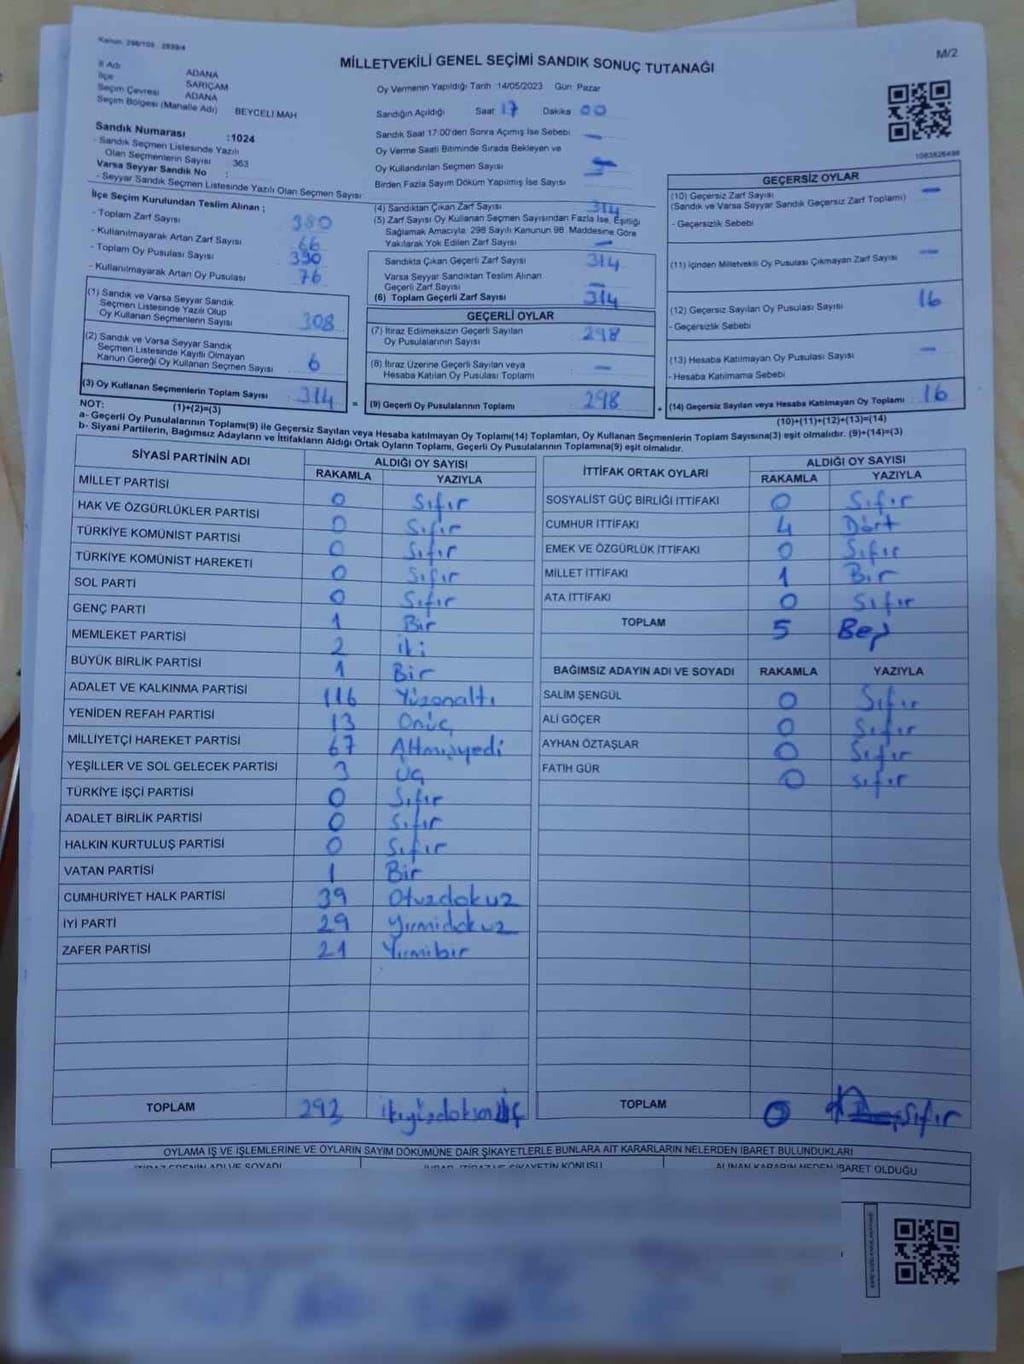 Kanun. 298/105 2839/4
MİLLETVEKİLİ GENEL SEÇİMİ SANDIK SONUÇ TUTANAĞI
M/2
İl Adı ADANA
İlçe SARIÇAM
Seçim Çevresi ADANA
Seçim Bölgesi (Mahalle Adı) BEYCELİ MAH
Sandık Numarası :1024
- Sandık Seçmen Listesinde Yazılı
Olan Seçmenlerin Sayısı 363
Varsa Seyyar Sandık No :
- Seyyar Sandık Seçmen Listesinde Yazılı Olan Seçmen Sayısı
Oy Vermenin Yapıldığı Tarih 14/05/2023 Gün Pazar
Sandığın Açıldığı Saat 17 Dakika 00
Sandık Saat 17:00'den Sonra Açılmış İse Sebebi —
Oy Verme Saati Bitiminde Sırada Bekleyen ve
Oy Kullandırılan Seçmen Sayısı
Birden Fazla Sayım Döküm Yapılmış İse Sayısı —
1083826498
İlçe Seçim Kurulundan Teslim Alınan ;
- Toplam Zarf Sayısı 380
- Kullanılmayarak Artan Zarf Sayısı 66
- Toplam Oy Pusulası Sayısı 390
- Kullanılmayarak Artan Oy Pusulası 76
(1) Sandık ve Varsa Seyyar Sandık
Seçmen Listesinde Yazılı Olup
Oy Kullanan Seçmenlerin Sayısı 308
(2) Sandık ve Varsa Seyyar Sandık
Seçmen Listesinde Kayıtlı Olmayan
Kanun Gereği Oy Kullanan Seçmen Sayısı 6
(3) Oy Kullanan Seçmenlerin Toplam Sayısı 314
(1)+(2)=(3)
(4) Sandıktan Çıkan Zarf Sayısı 314
(5) Zarf Sayısı Oy Kullanan Seçmen Sayısından Fazla İse, Eşitliği
Sağlamak Amacıyla, 298 Sayılı Kanunun 98. Maddesine Göre
Yakılarak Yok Edilen Zarf Sayısı —
Sandıkta Çıkan Geçerli Zarf Sayısı 314
Varsa Seyyar Sandıktan Teslim Alınan
Geçerli Zarf Sayısı —
(6) Toplam Geçerli Zarf Sayısı 314
GEÇERLİ OYLAR
(7) İtiraz Edilmeksizin Geçerli Sayılan
Oy Pusulalarının Sayısı 298
(8) İtiraz Üzerine Geçerli Sayılan veya
Hesaba Katılan Oy Pusulası Toplamı —
= (9) Geçerli Oy Pusulalarının Toplamı 298
GEÇERSİZ OYLAR
(10) Geçersiz Zarf Sayısı —
(Sandık ve Varsa Seyyar Sandık Geçersiz Zarf Toplamı)
- Geçersizlik Sebebi
(11) İçinden Milletvekili Oy Pusulası Çıkmayan Zarf Sayısı —
(12) Geçersiz Sayılan Oy Pusulası Sayısı 16
- Geçersizlik Sebebi
(13) Hesaba Katılmayan Oy Pusulası Sayısı —
- Hesaba Katılmama Sebebi
+ (14) Geçersiz Sayılan veya Hesaba Katılmayan Oy Toplamı 16
(10)+(11)+(12)+(13)=(14)
NOT:
a- Geçerli Oy Pusulalarının Toplamı(9) ile Geçersiz Sayılan veya Hesaba katılmayan Oy Toplamı(14) Toplamları, Oy Kullanan Seçmenlerin Toplam Sayısına(3) eşit olmalıdır. (9)+(14)=(3)
b- Siyasi Partilerin, Bağımsız Adayların ve İttifakların Aldığı Ortak Oyların Toplamı, Geçerli Oy Pusulalarının Toplamına(9) eşit olmalıdır.
SİYASİ PARTİNİN ADI ALDIĞI OY SAYISI
RAKAMLA YAZIYLA
MİLLET PARTİSİ 0 Sıfır
HAK VE ÖZGÜRLÜKLER PARTİSİ 0 Sıfır
TÜRKİYE KOMÜNİST PARTİSİ 0 Sıfır
TÜRKİYE KOMÜNİST HAREKETİ 0 Sıfır
SOL PARTİ 0 Sıfır
GENÇ PARTİ 1 Bir
MEMLEKET PARTİSİ 2 iki
BÜYÜK BİRLİK PARTİSİ 1 Bir
ADALET VE KALKINMA PARTİSİ 116 Yüzonaltı
YENİDEN REFAH PARTİSİ 13 Onüç
MİLLİYETÇİ HAREKET PARTİSİ 67 Altmışyedi
YEŞİLLER VE SOL GELECEK PARTİSİ 3 Üç
TÜRKİYE İŞÇİ PARTİSİ 0 Sıfır
ADALET BİRLİK PARTİSİ 0 Sıfır
HALKIN KURTULUŞ PARTİSİ 0 Sıfır
VATAN PARTİSİ 1 Bir
CUMHURİYET HALK PARTİSİ 39 Otuzdokuz
İYİ PARTİ 29 Yirmidokuz
ZAFER PARTİSİ 21 Yirmibir
TOPLAM 293 ikiyüzdoksanüç
İTTİFAK ORTAK OYLARI ALDIĞI OY SAYISI
RAKAMLA YAZIYLA
SOSYALİST GÜÇ BİRLİĞİ İTTİFAKI 0 Sıfır
CUMHUR İTTİFAKI 4 Dört
EMEK VE ÖZGÜRLÜK İTTİFAKI 0 Sıfır
MİLLET İTTİFAKI 1 Bir
ATA İTTİFAKI 0 Sıfır
TOPLAM 5 Beş
BAĞIMSIZ ADAYIN ADI VE SOYADI RAKAMLA YAZIYLA
SALİM ŞENGÜL 0 Sıfır
ALİ GÖÇER 0 Sıfır
AYHAN ÖZTAŞLAR 0 Sıfır
FATİH GÜR 0 sıfır
TOPLAM 0 sıfır
OYLAMA İŞ VE İŞLEMLERİNE VE OYLARIN SAYIM DÖKÜMÜNE DAİR ŞİKAYETLERLE BUNLARA AİT KARARLARIN NELERDEN İBARET BULUNDUKLARI
İTİRAZ EDENİN ADI VE SOYADI İHBAR, İTİRAZ VE ŞİKAYETİN KONUSU ALINAN KARARIN NEDEN İBARET OLDUĞU